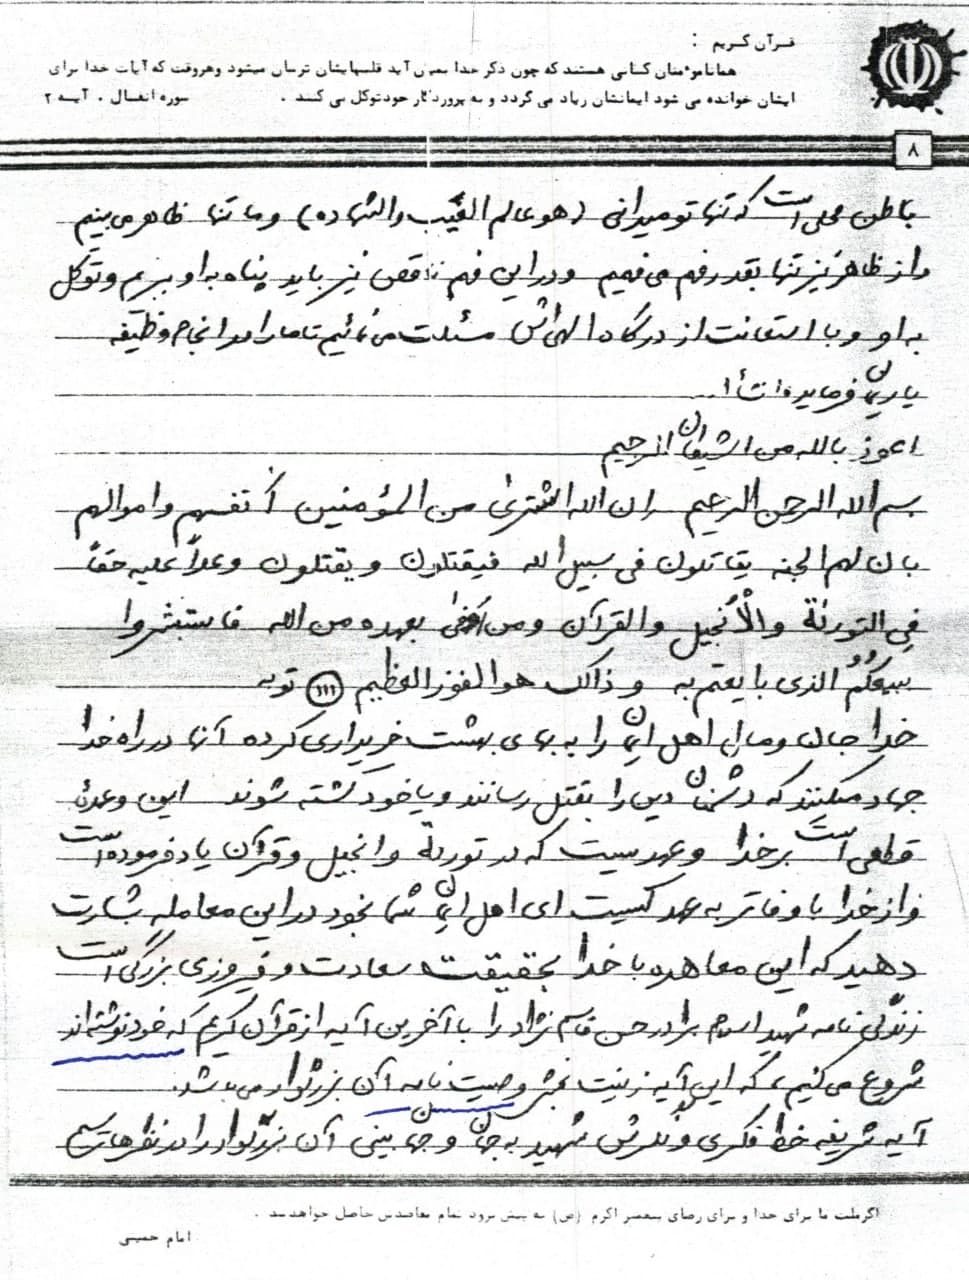 قرآن کریم :
همانا مؤمنان کسانی هستند که چون ذکر خدا بمیان آید قلبهایشان ترسان میشود و هر وقت که آیات خدا برای
ایشان خوانده می شود ایمانشان زیاد می گردد و به پروردگار خود توکل می کنند .
سوره انفال . آیه ۲
۸
باطن عملی است که تنها تو میدانی (هو عالم الغیب والشهاده) و ما تنها ظاهر می بینیم
و از ظاهر نیز تنها بقدر فهم می فهمیم و در این فهم ناقص نیز باید پناه به او ببریم و توکل
به او و با استعانت از درگاه الهی اش مسئلت می نمائیم تا ما را در انجام وظیفه
یاریمان فرماید انشاا...
اعوذ بالله من الشیطان الرجیم
بسم الله الرحمن الرحیم ان الله اشتری من المؤمنین أنفسهم و اموالهم
بان لهم الجنه یقاتلون فی سبیل الله فیقتلون و یقتلون وعداً علیه حقاً
فی التوریة والأنجیل والقرآن ومن اوفی بعهده من الله فاستبشروا
ببیعکُمُ الذی بایعتم به و ذالک هو الفوز العظیم (۱۱۱) توبه
خدا جان و مال اهل ایمان را به بهای بهشت خریداری کرده آنها در راه خدا
جهاد میکنند که دشمنان دین را بقتل رسانند و یا خود کشته شوند این وعدهٔ
قطعی است بر خدا و عهدیست که در توریة و انجیل و قرآن یاد فرموده است
و از خدا با وفاتر به عهد کیست ای اهل ایمان شما بخود در این معامله بشارت
دهید که این معاهده با خدا بحقیقت سعادت و فیروزی بزرگی است
زندگی نامه شهید اسلام برادر حسن قاسم نژاد را با آخرین آیه از قرآن کریم که خود نوشته اند
شروع می کنیم، که این آیه زینت بخش وصیت نامه آن بزرگوار می باشد.
آیه شریفه خط فکری و نگرش شهید به جهان و جهان بینی آن بزرگوار را در نظرها ترسیم
اگر ملت ما برای خدا و برای رضای پیغمبر اکرم (ص) به پیش برود تمام مقاصدش حاصل خواهد شد .
امام خمینی